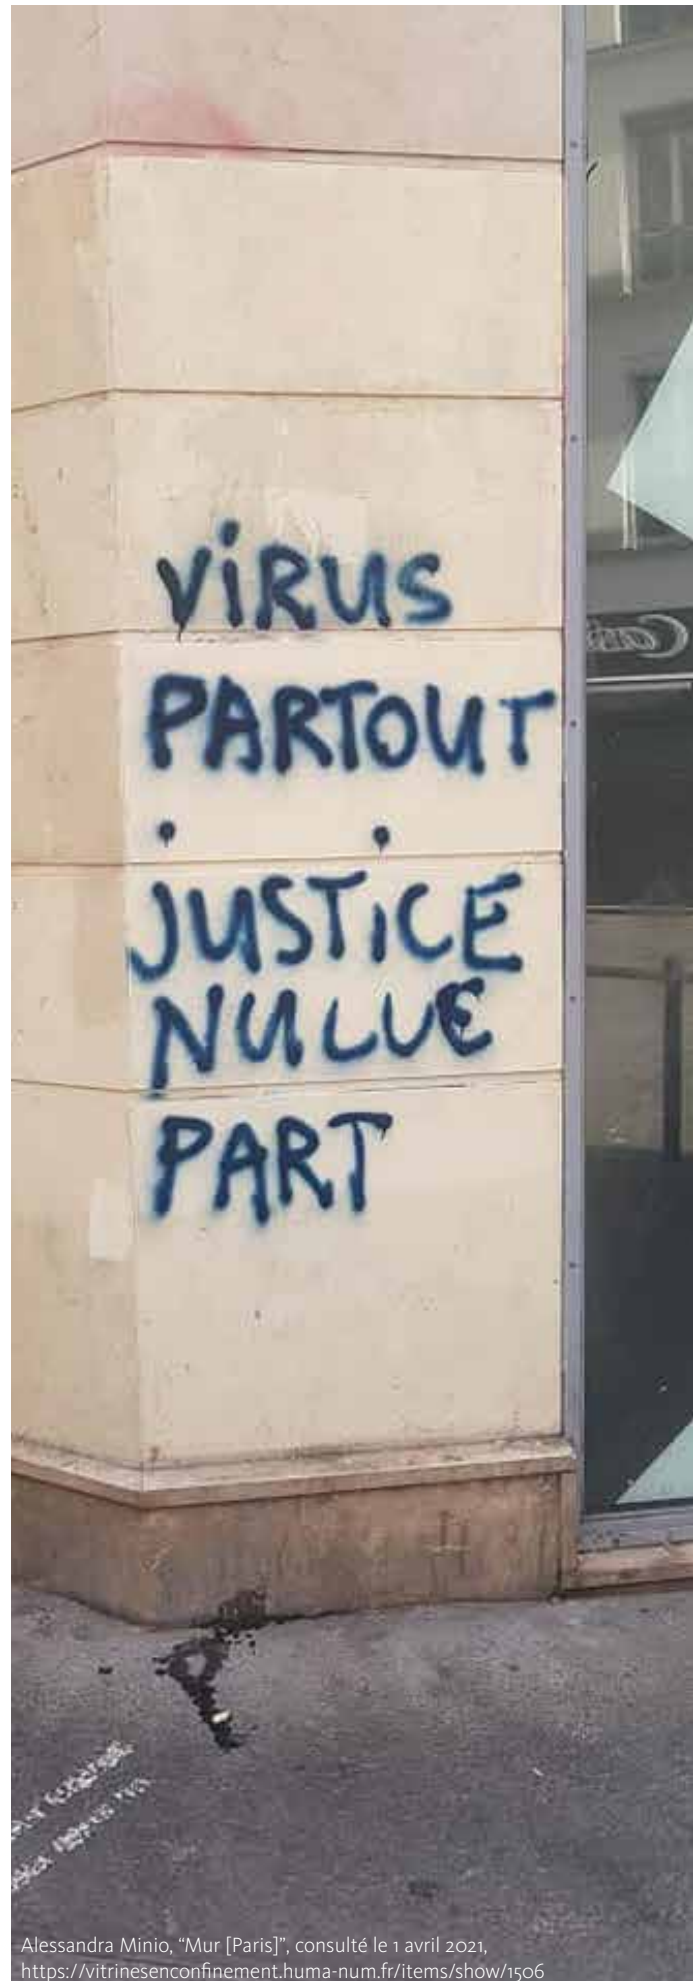 ViRUS
PARTOUT
JUSTiCE
NULLE
PART
Alessandra Minio, “Mur [Paris]”, consulté le 1 avril 2021,
https://vitrinesenconfinement.huma-num.fr/items/show/1506